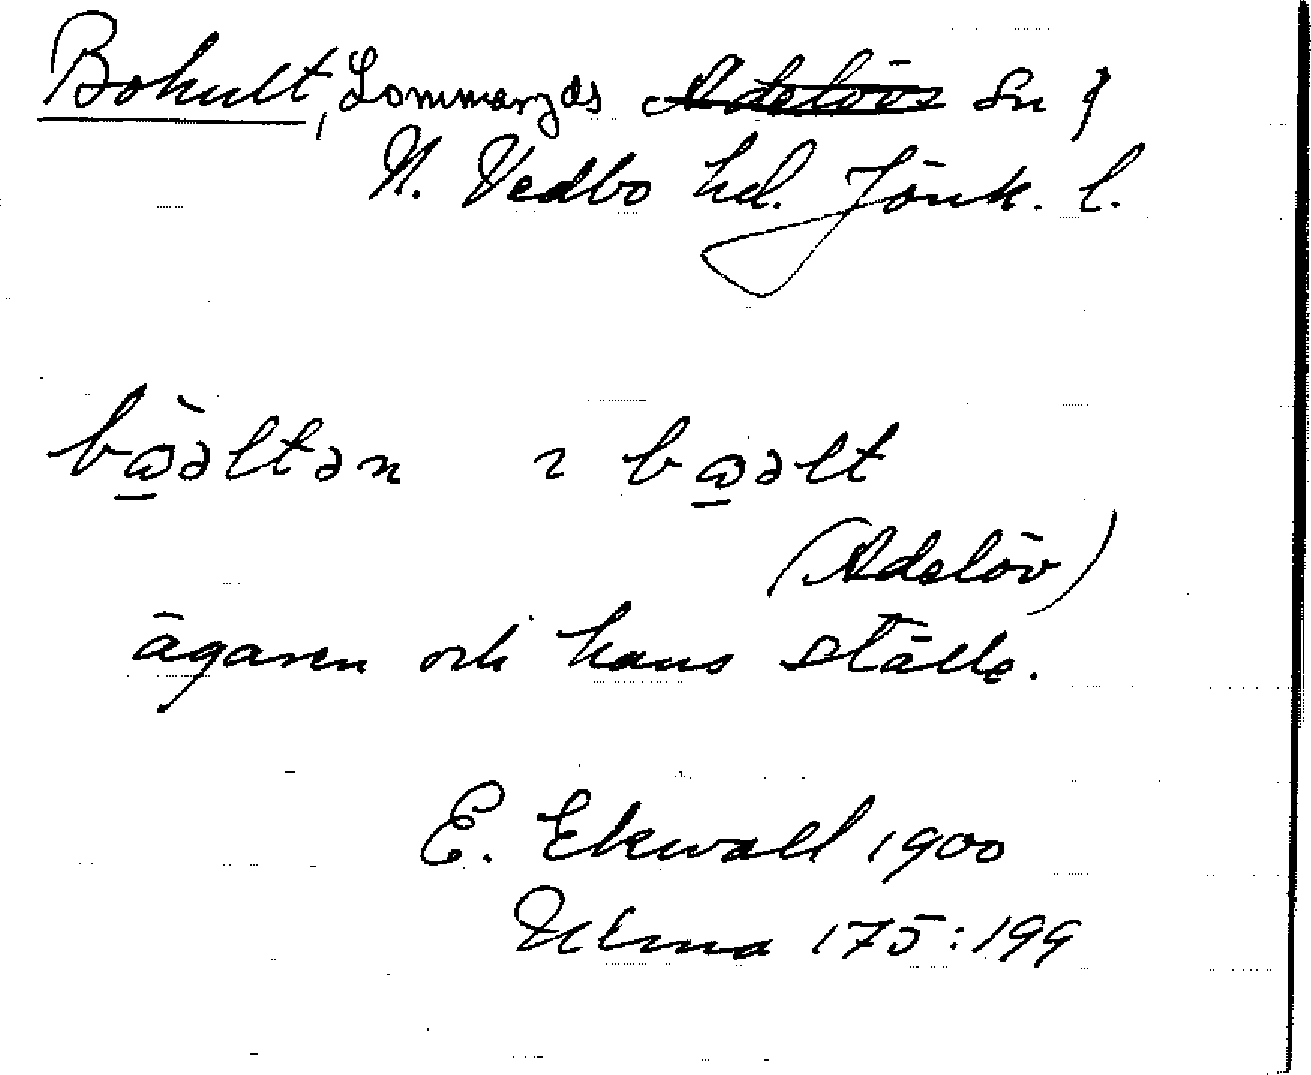 Bohult, Lommaryds ~~Adelövs~~ sn
N. Vedbo hd. Jönk. l.
bѡ̀əltən ı bѡəlt
(Adelöv)
ägaren och hans ställe.
E. Ekwall 1900
Ulma 175:199